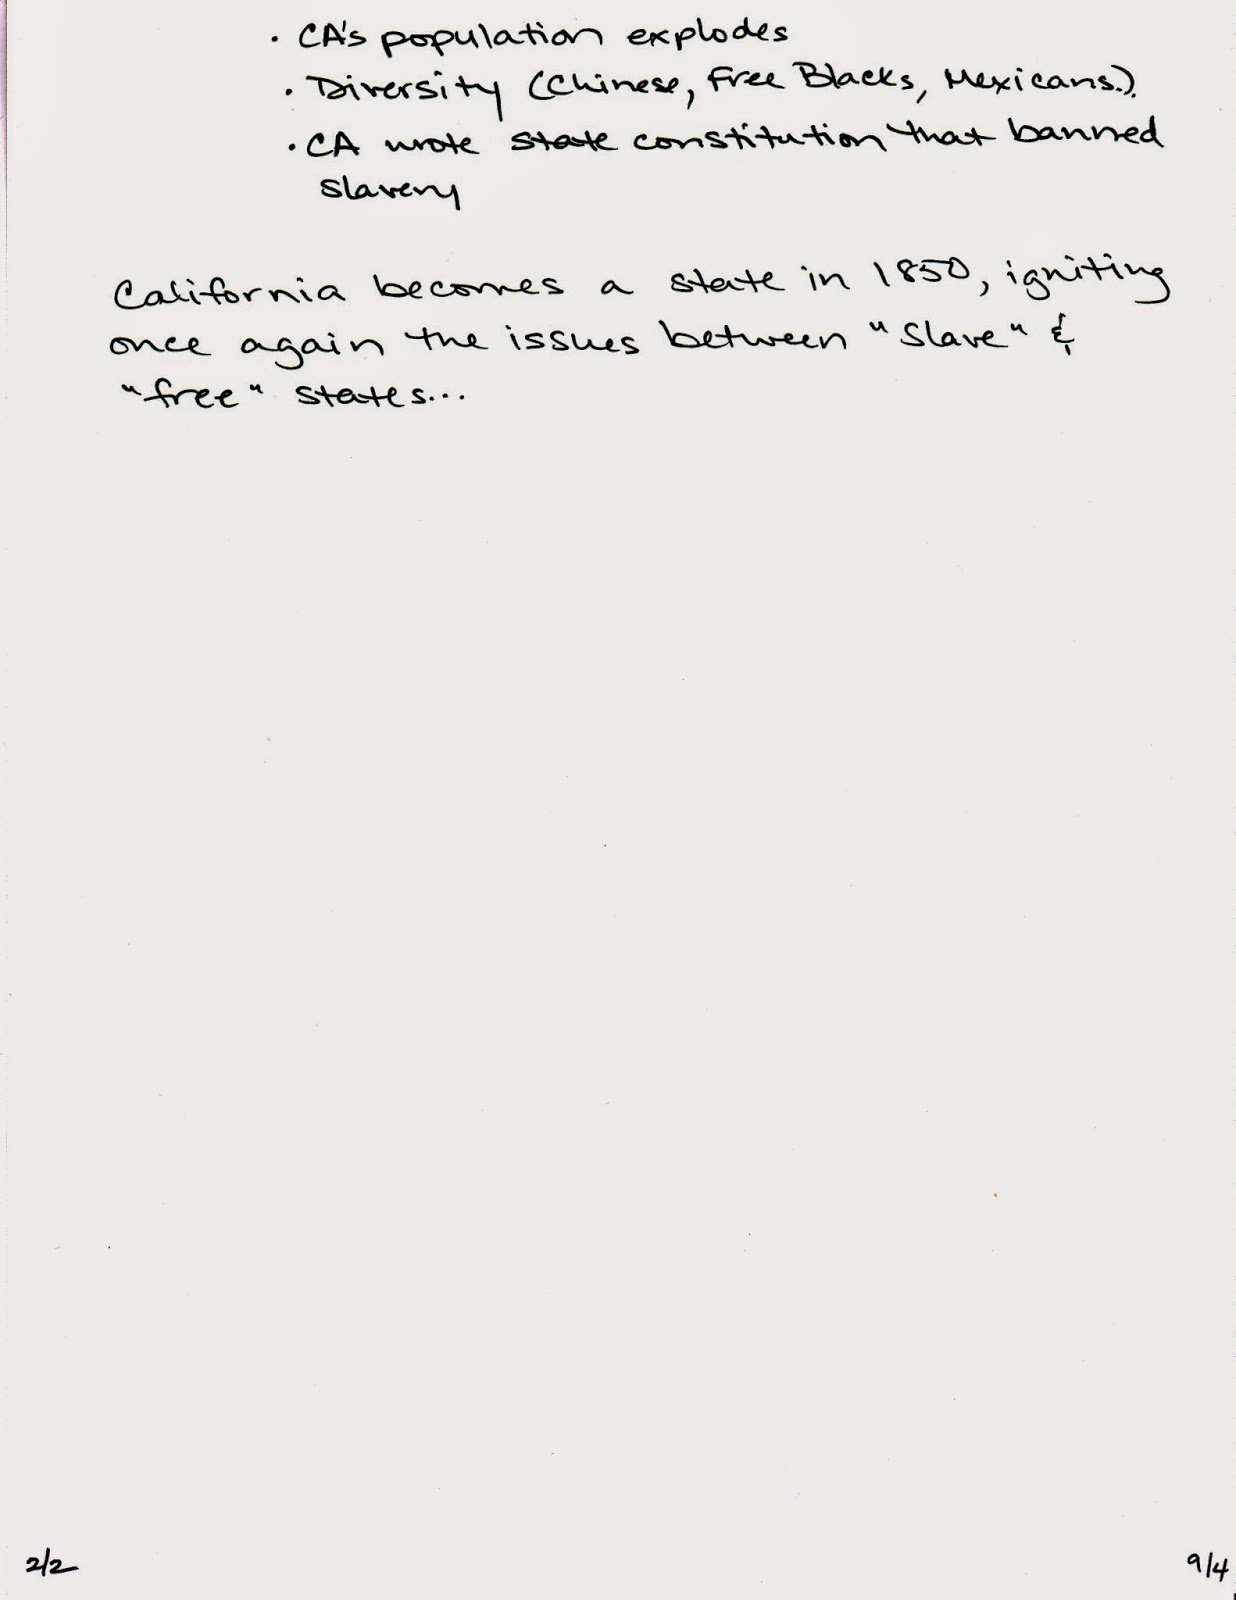 · CA's population explodes
· Diversity (Chinese, Free Blacks, Mexicans.).
· CA wrote state constitution that banned
slavery
California becomes a state in 1850, igniting
once again the issues between "slave" &
"free" states...
2/2
9/4